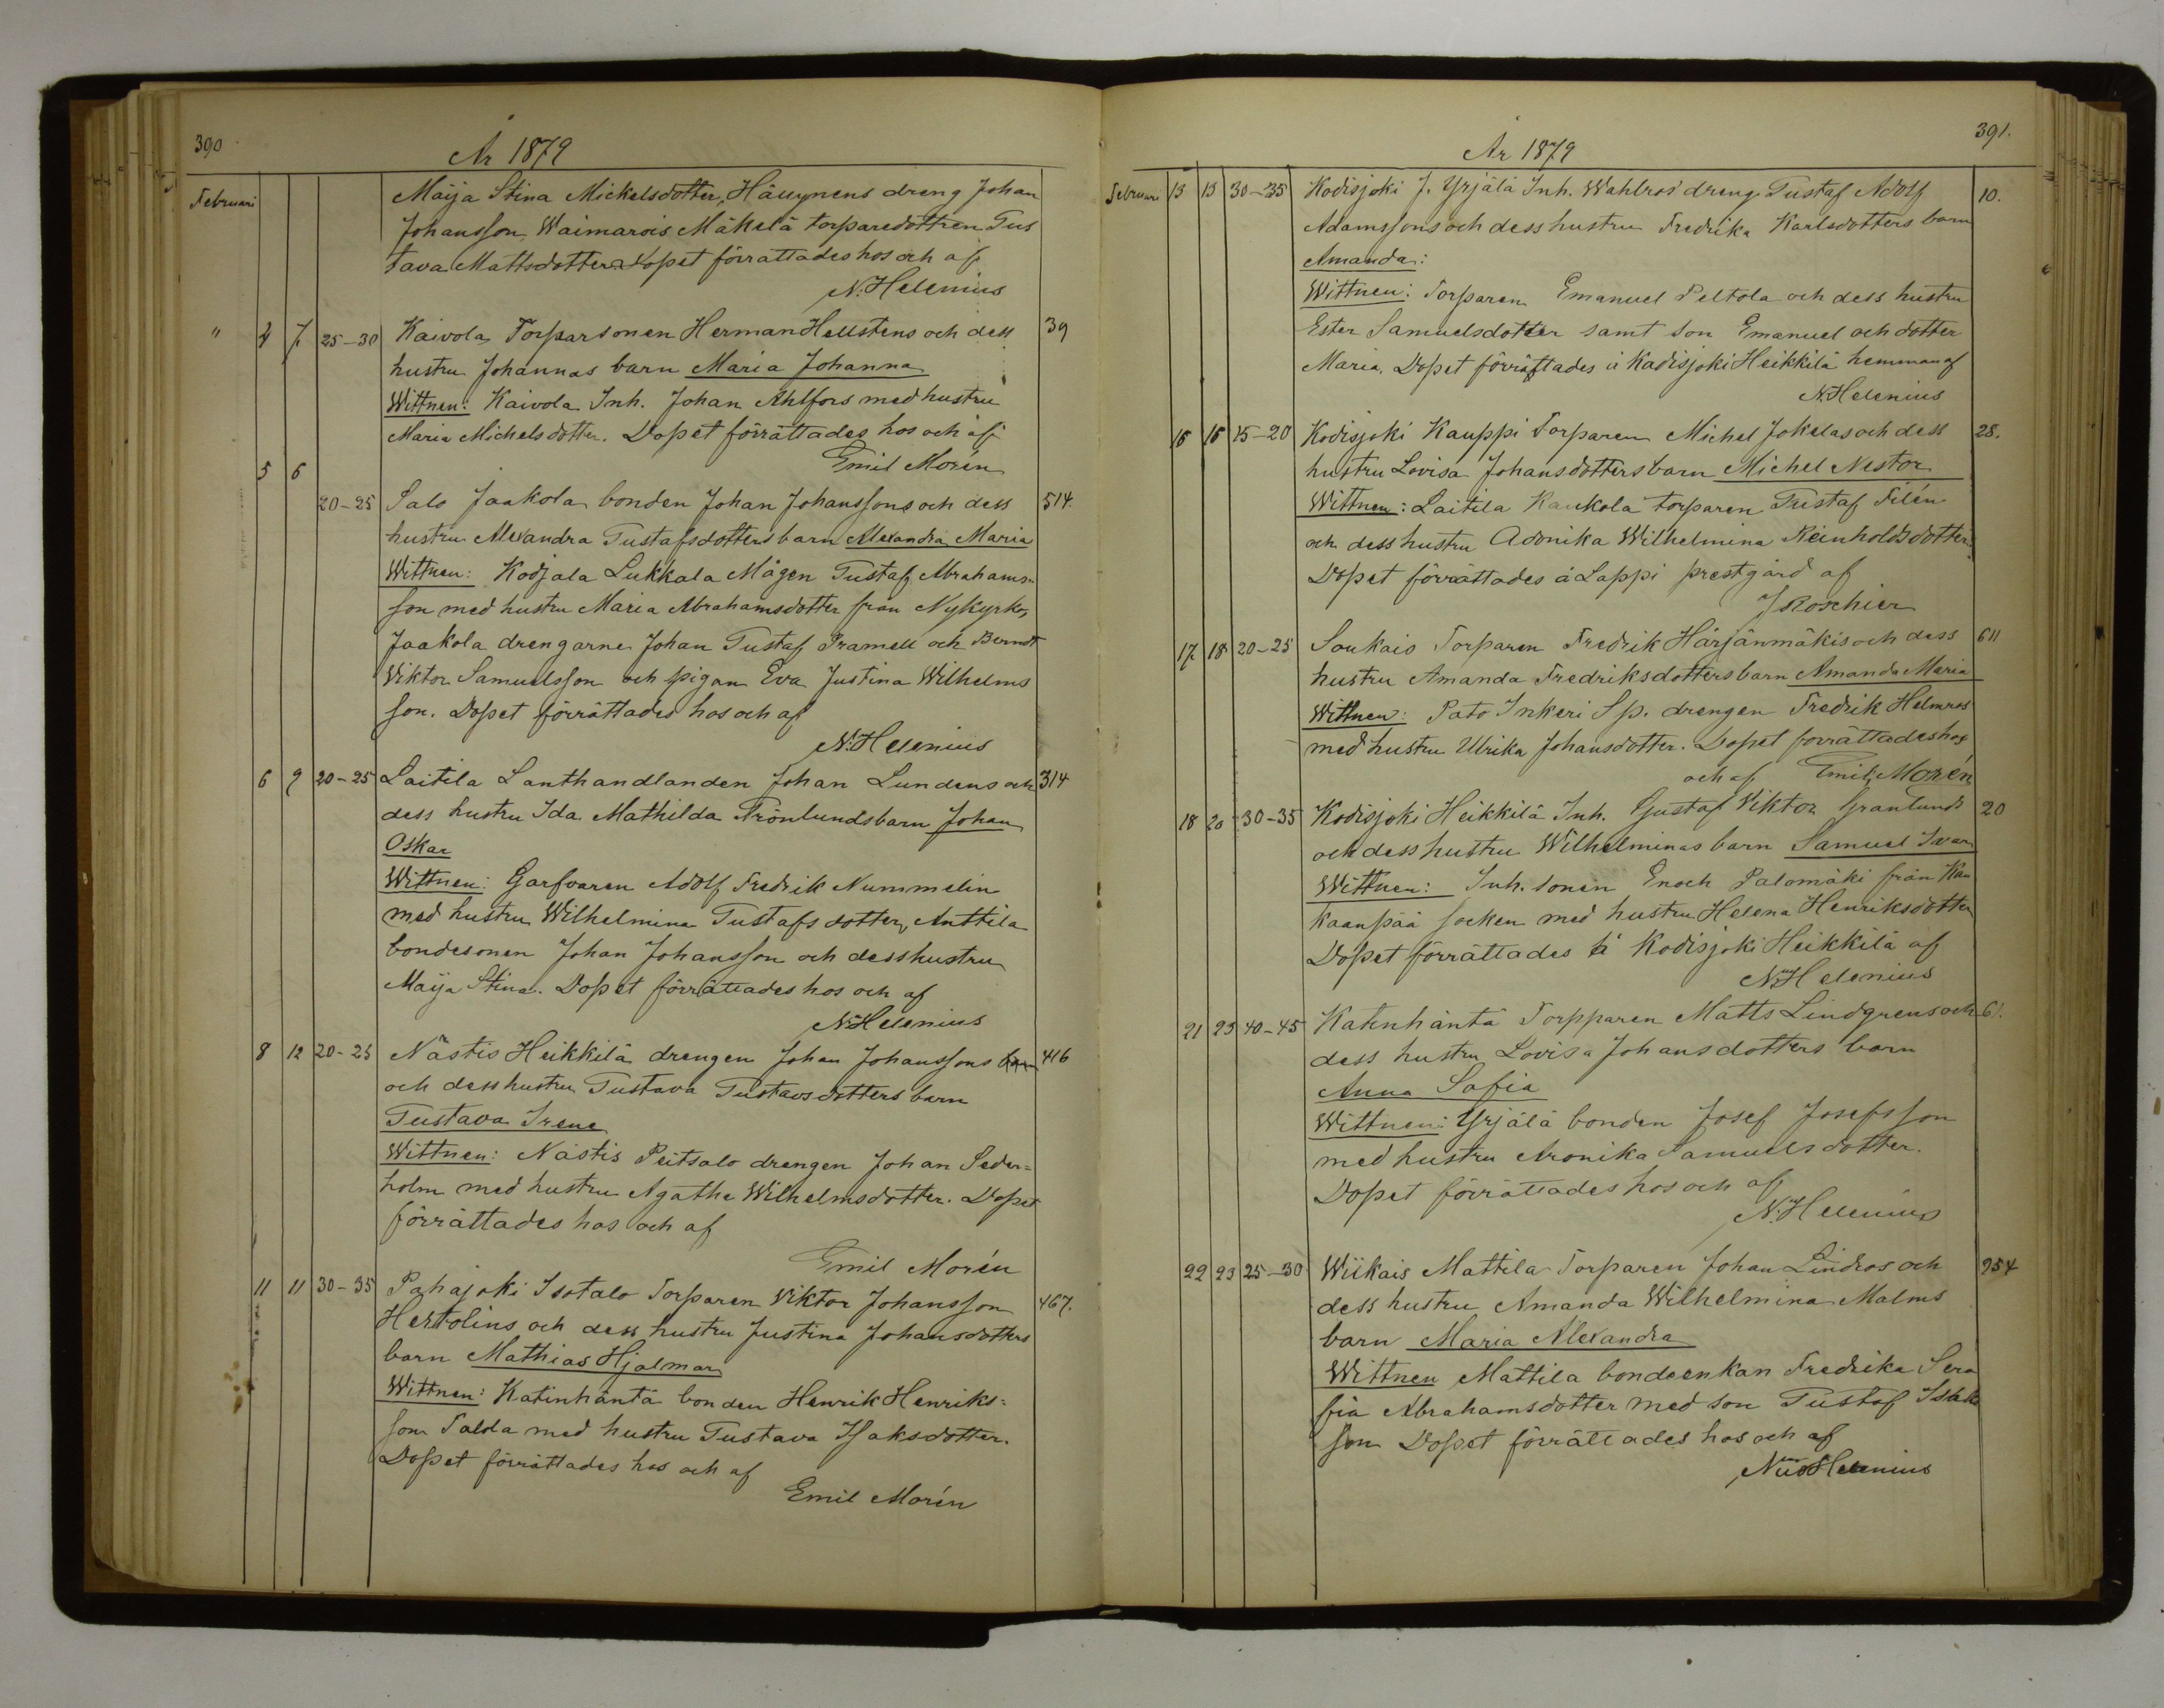 390
År 1879
Februari Maija Stina Mickelsdotter, Häuynens dreng Johan
Johansson, Waimarois Mäkelä torparedottren Gus
tava Mattsdotter. Dopet förrättades hos och af
N. Helenius
" 4 7 25-30 Kaivola Torparsonen Herman Hellstens och dess 39
hustru Johannas barn Maria Johanna
Wittnen: Kaivola Inh. Johan Ahlfors med hustru
Maria Michelsdotter. Dopet förrättades hos och af
Emil Morén
5 6
20-25 Salo Jaakola bonden Johan Johanssons och dess 514.
hustru Alexandra Gustafsdotters barn Alexandra Maria
Wittnen: Kodjala Lukkala Mågen Gustaf Abrahams=
son med hustru Maria Abrahamsdotter från Nykyrko,
Jaakola drengarne Johan Gustaf Pramell och Berndt
Viktor Samuelsson och pigan Eva Justina Wilhelms
son. Dopet förrättades hos och af
N. Helenius
6 9 20-25 Laitila Lanthandlanden Johan Lundens och 314
dess hustru Ida Mathilda Frönlunds barn Johan
Oskar
Wittnen: Garfvaren Adolf Fredrik Nummelin
med hustru Wilhelmina Gustafsdotter, Anttila
bondesonen Johan Johansson och dess hustru
Maija Stina. Dopet förrättades hos och af
N. Helenius
8 12 20-25 Nästis Heikkilä drengen Johan Johanssons barn 416
och dess hustru Gustava Gustavsdotters barn
Gustava Irene
Wittnen: Nästis Peitsalo drengen Johan Seder=
holm med hustru Agatha Wilhelmsdotter. Dopet
förrättades hos och af
Emil Morén
11 11 30-35 Pahajoki Isotalo Torparen Viktor Johansson 467.
Hertolins och dess hustru Justina Johansdotters
barn Mathias Hjalmar
Wittnen: Katinhäntä bonden Henrik Henriks=
son Salda med hustru Gustava Isaksdotter.
Dopet förrättades hos och af
Emil Morén
391.
År 1879
Februari 13 15 30-35 Kodisjoki J. Yrjälä Inh. Wahlros' dreng Gustaf Adolf 10.
Adamssons och dess hustru Fredrika Karlsdotters barn
Amanda:
Wittnen: Torparen Emanuel Peltola och dess hustru
Ester Samuelsdotter samt son Emanuel och dotter
Maria. Dopet förrättades å Kodisjoki Heikkilä hemman af
N. Helenius
16 16 15-20 Kodisjoki Kauppi Torparen Michel Jokelas och dess 28.
hustru Lovisa Johansdotters barn Michel Nestor
Wittnen: Laitila Kaukola torparen Gustaf Filén
och dess hustru Adonika Wilhelmina Reinholdsdotter.
Dopet förrättades å Lappi prestgård af
J Roschier
17 18 20-25 Soukais Torparen Fredrik Härjänmäkis och dess 611
hustru Amanda Fredriksdotters barn Amanda Maria
Wittnen: Pato Inkeri Sp. drengen Fredrik Helmros
med hustru Ulrika Johansdotter. Dopet förrättades hos
och af Emil Morén
18 20 30-35 Kodisjoki Heikkilä Inh. Gustaf Viktor Granlunds 20
och dess hustru Wilhelminas barn Samuel Ivar
Wittnen: Inh. sonen Enoch Palomäki från Kan
kaanpää socken med hustru Helena Henriksdotter
Dopet förrättades å Kodisjoki Heikkilä af
N. Helenius
21 23 40-45 Katinhäntä Torpparen Matts Lindgrens och 61.
dess hustru Lovisa Johansdotters barn
Anna Sofia
Wittnen: Yrjälä bonden Josef Josefsson
med hustru Aronika Samuelsdotter.
Dopet förrättades hos och af
N. Helenius
22 23 25-30 Wiikais Mattila Torparen Johan Lindros och 254
dess hustru Amanda Wilhelmina Malms
barn Maria Alexandra
Wittnen Mattila bondeenkan Fredrika Sera
fia Abrahamsdotter med son Gustaf Isaks
son Dopet förrättades hos och af
Nils Helenius